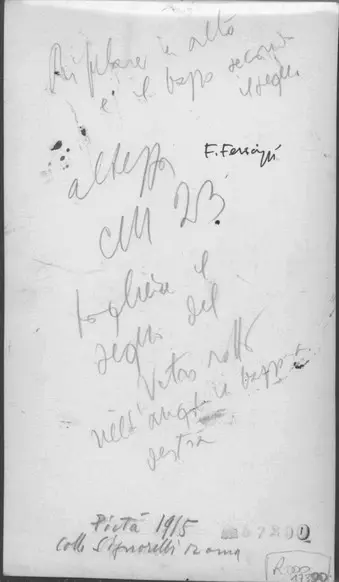 Rifilare in alto
e in basso secondo
i segni
F. Ferrazzi
altezza
cm 23.
togliere il
segno del
vetro rotto
nell'angolo in basso a
destra
Pietà 1915
Coll. Signorelli Roma
67800